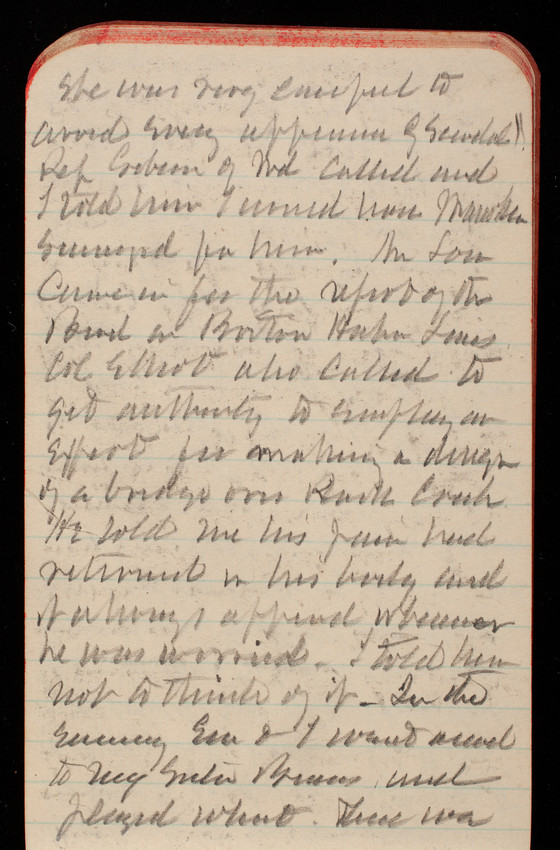 She was very careful to
avoid every appearance of Scandal".
Rep Gibson of Md called and
I told him I would have Mawken
summoned for him. Mr Low
Came in for the report of the
Board on Boston Harbor Lines.
Col Elliot also called to
get authority to employ an
Expert for making a design
of a bridge over Rock Creek.
He told me his pain had
returned in his body and
it always appeared whenever
he was worried. I told him
not to think of it - In the
evening Em & I went around
to Mrs Bruns and
played whist. There was